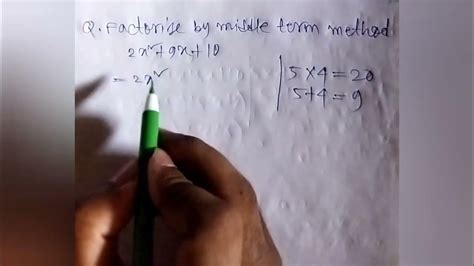 Q. Factorise by middle term method
2x²+9x+10
= 2x²
5×4=20
5+4=9